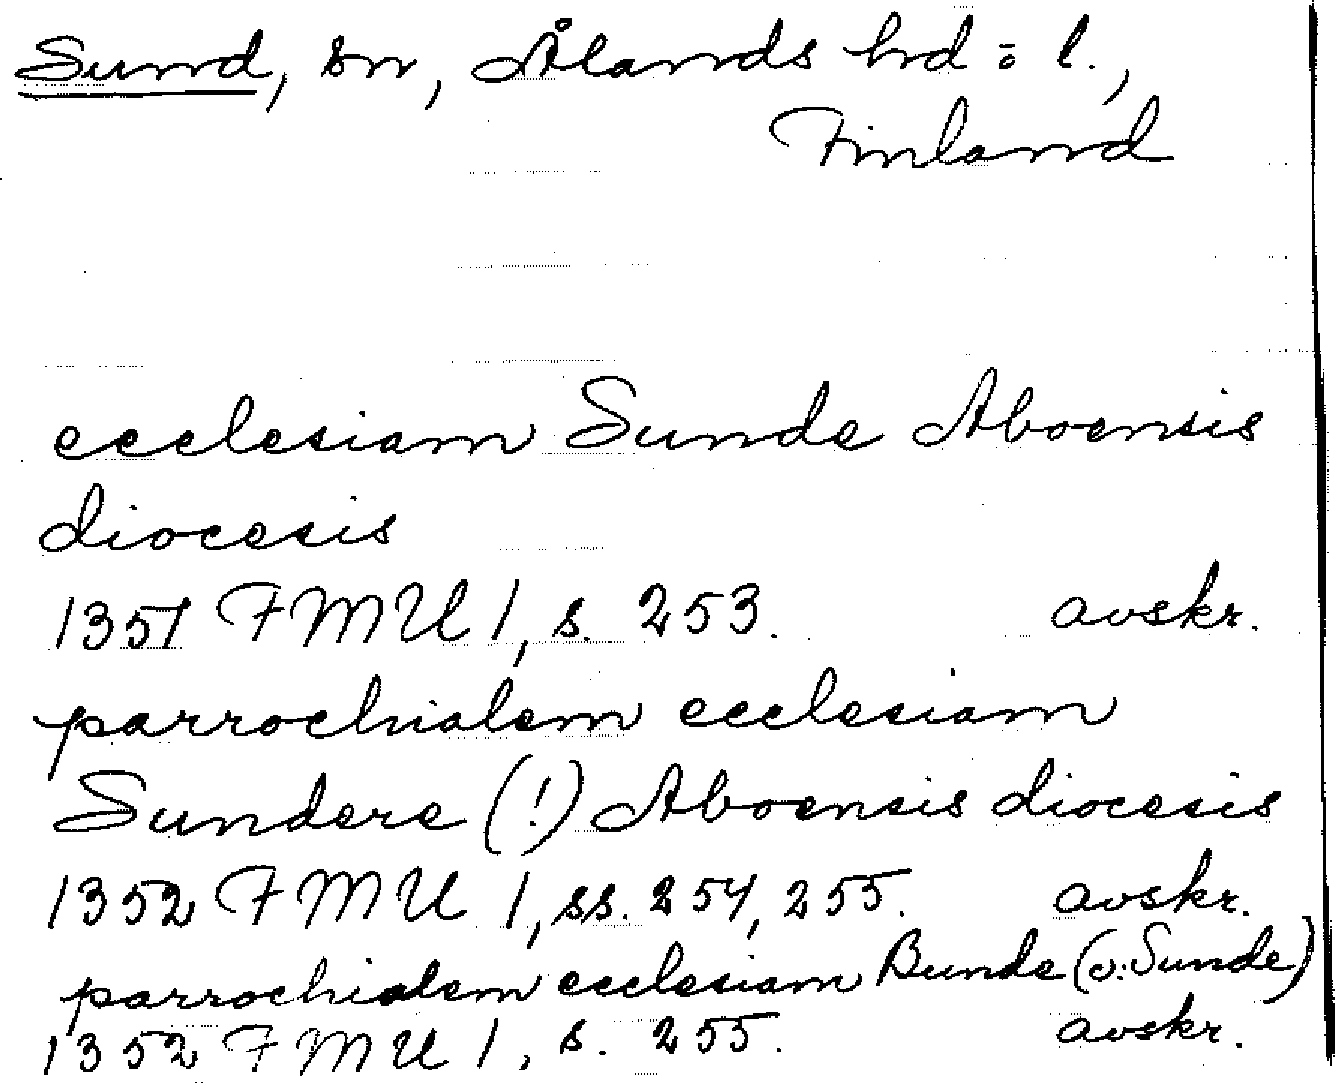 Sund, sn, Ålands hd o l.,
Finland
ecclesiam Sunde Aboensis
diocesis
1351 FMU 1, s. 253. avskr.
parrochialem ecclesiam
Sundere (!) Aboensis diocesis
1352 FMU 1, ss. 254, 255. avskr.
parrochialem ecclesiam Bunde (o: Sunde)
1352 FMU 1, s. 255. avskr.